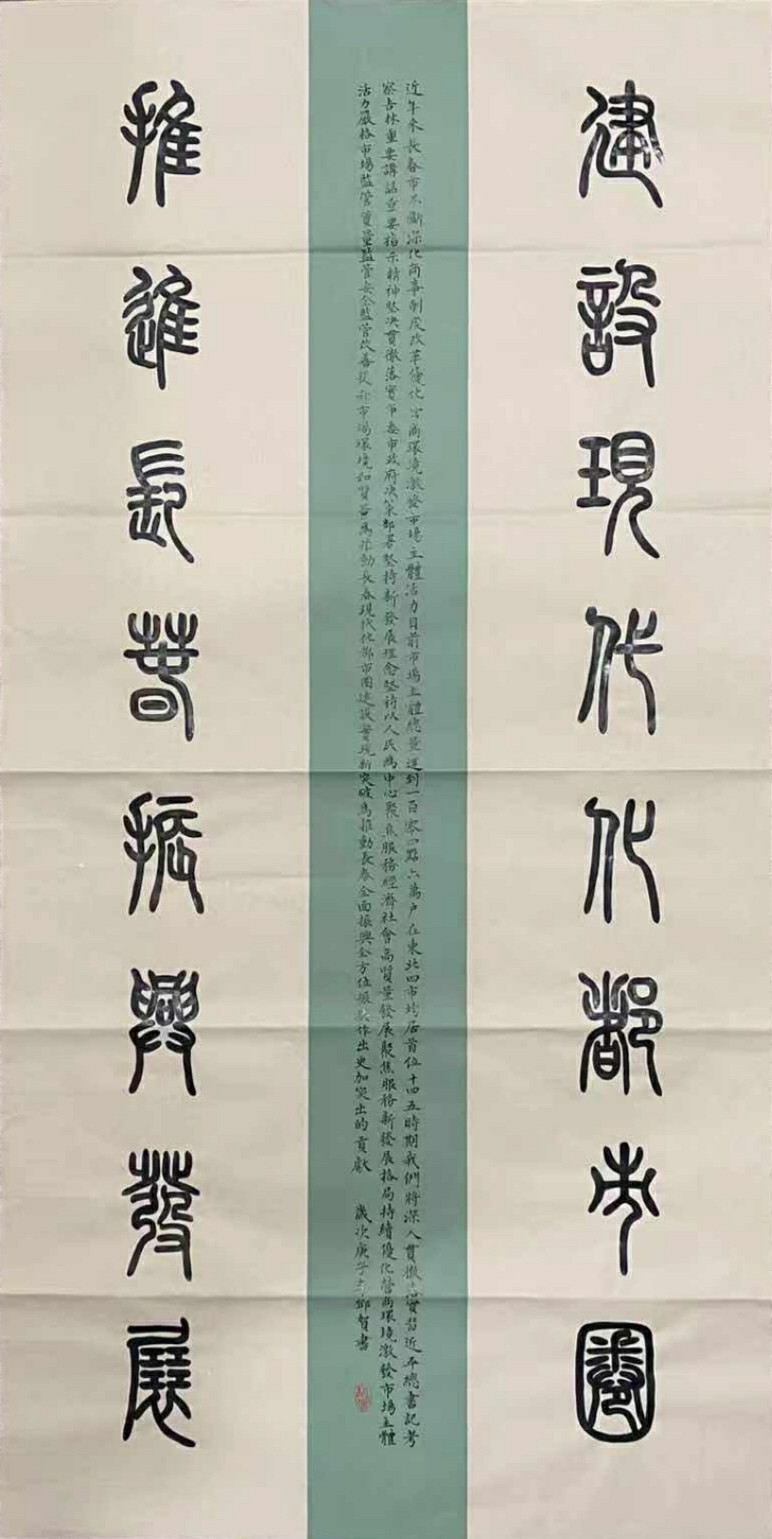 建設現代化都市圈
近年來長春市不斷深化商事制度改革優化營商環境激發市場主體活力目前市場主體總量達到一百零四點六萬户在東北四市均居首位十四五時期我們將深入貫徹落實習近平總書記考
察吉林重要講話重要指示精神堅決貫徹落實市委市政府決策部署堅持新發展理念堅持以人民爲中心聚焦服務經濟社會高質量發展聚焦服務新發展格局持續優化營商環境激發市場主體
活力嚴格市場監管質量監管安全監管改善提升市場環境和質量爲推動長春現代化都市圈建設實現新突破爲推動長春全面振興全方位振興作出更加突出的貢獻 歲次庚子 鄒賀書
推進長春振興發展